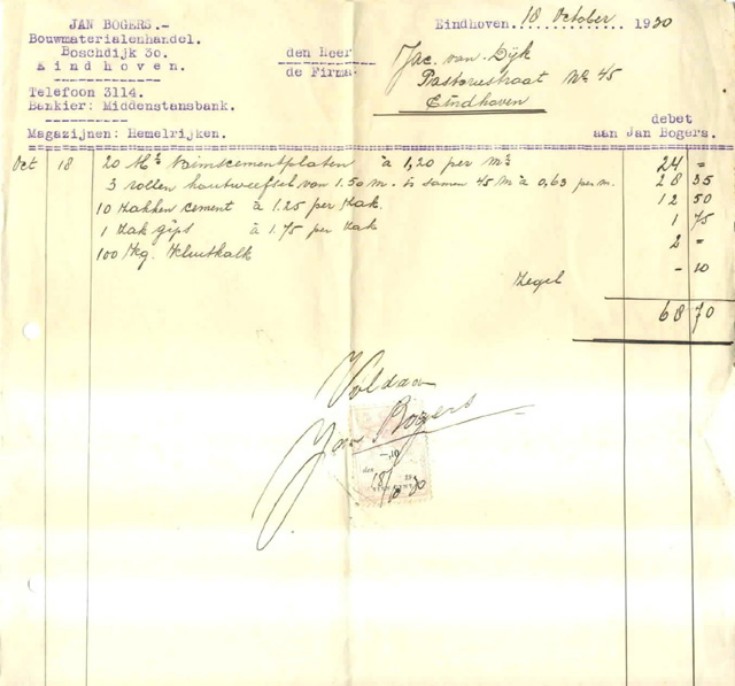 JAN BOGERS.-
Bouwmaterialenhandel.
Boschdijk 30.
Eindhoven.
Telefoon 3114.
Bankier: Middenstansbank.
Magazijnen: Hemelrijken.
Eindhoven. 18 October 1930
den Heer
de Firma
Jac. van Dijk
Pastoriestraat No 45
Eindhoven
debet
aan Jan Bogers.
Oct 18 20 M² Bimscementplaten à 1,20 per m² 24 =
3 rollen houtweefsel van 1.50 m. is samen 45 M à 0,63 per m. 28 35
10 zakken cement à 1.25 per zak. 12 50
1 zak gips à 1.75 per zak 1 75
100 Kg. Kluitkalk 2 =
Zegel - 10
68 70
Voldaan
Jan Bogers
-.10
18/10 30